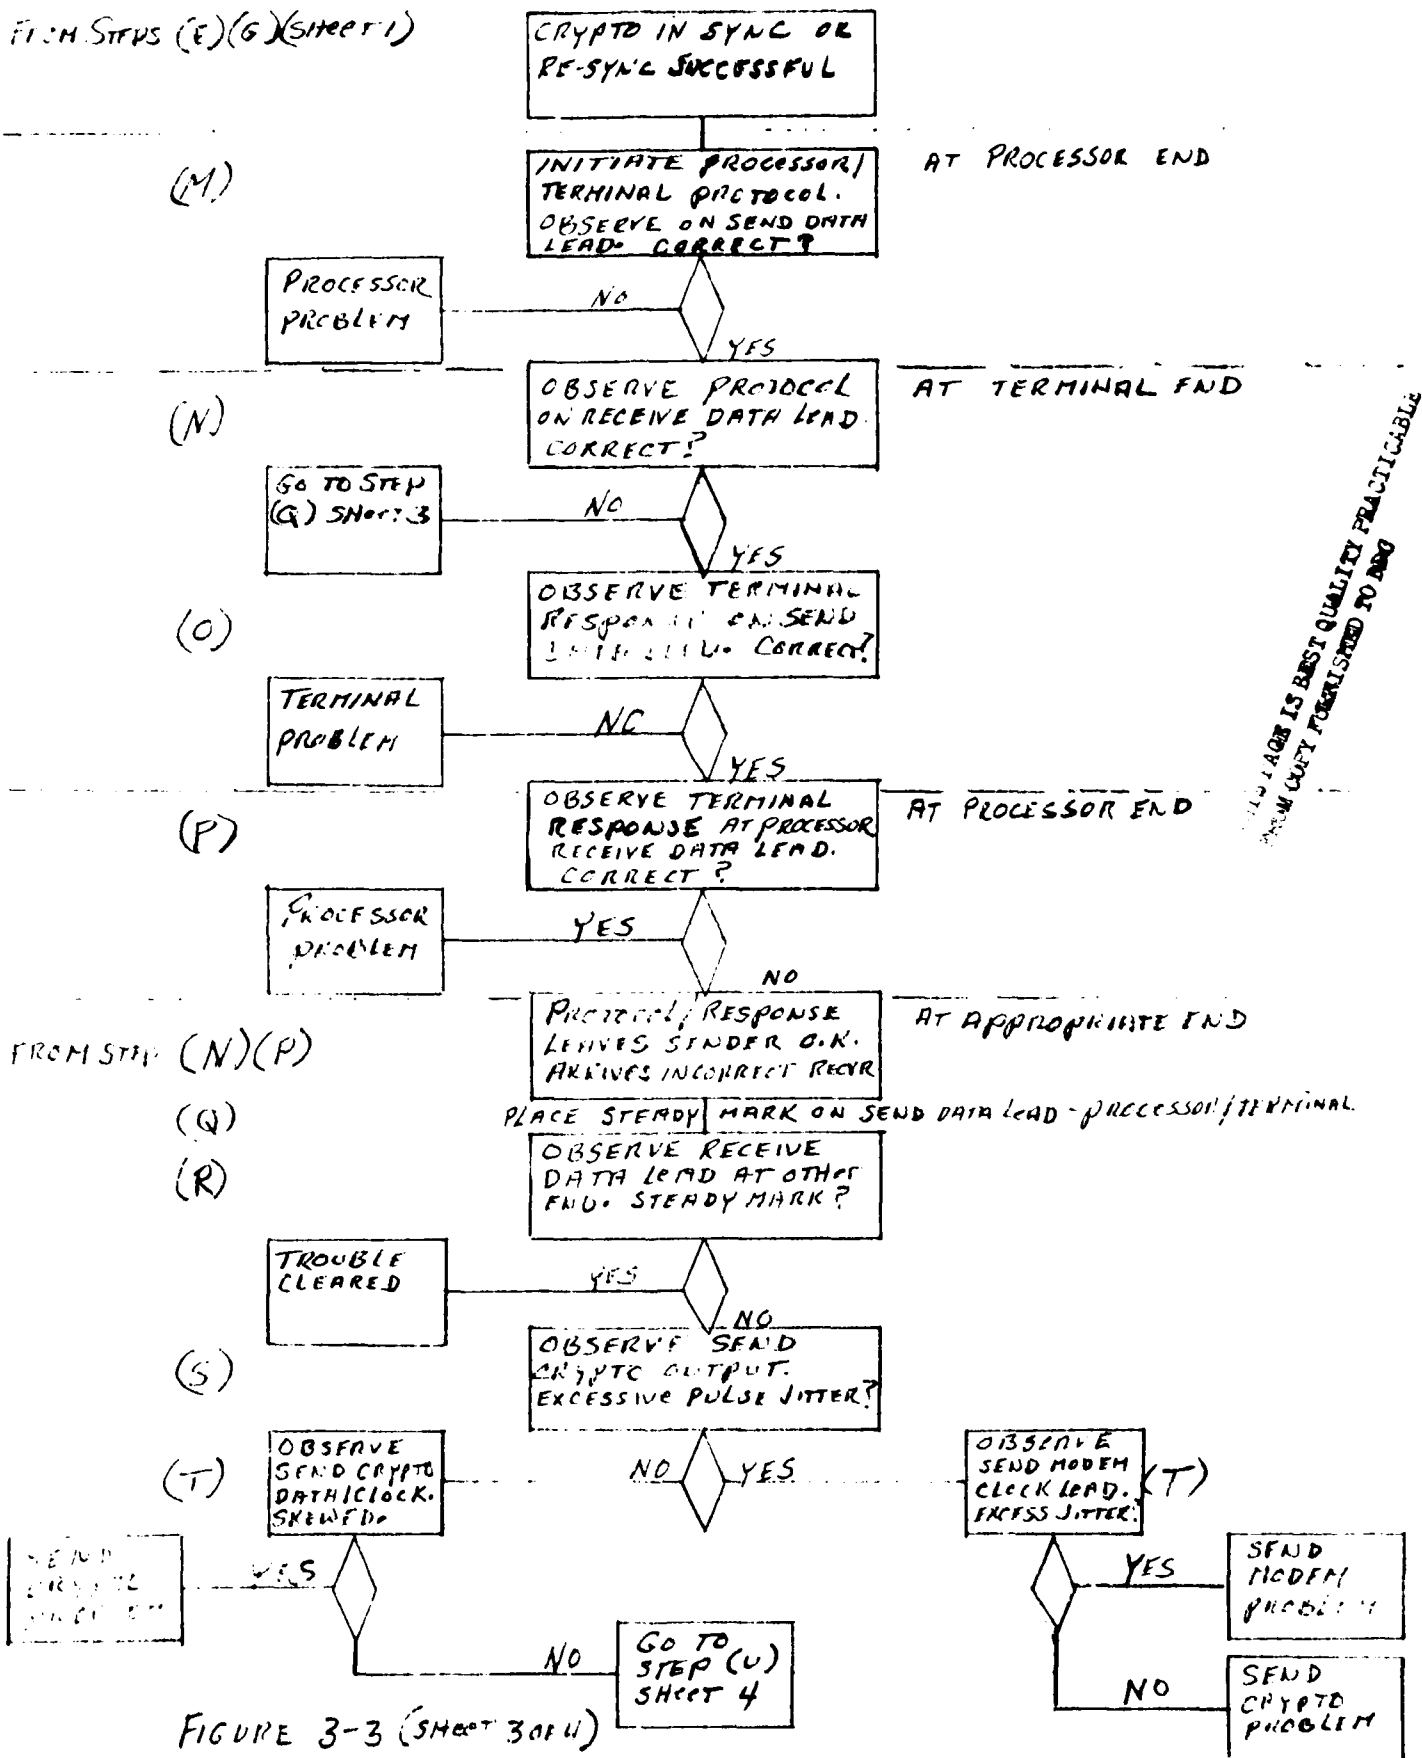 FROM STEPS (E)(G)(SHEET 1)
CRYPTO IN SYNC OR
RE-SYNC SUCCESSFUL
(M)
INITIATE PROCESSOR/
TERMINAL PROTOCOL.
OBSERVE ON SEND DATA
LEAD. CORRECT?
AT PROCESSOR END
PROCESSOR
PROBLEM
NO
YES
(N)
OBSERVE PROTOCOL
ON RECEIVE DATA LEAD.
CORRECT?
AT TERMINAL END
GO TO STEP
(Q) SHEET 3
NO
YES
(O)
OBSERVE TERMINAL
RESPONSE ON SEND
CORRECT?
TERMINAL
PROBLEM
NO
YES
(P)
OBSERVE TERMINAL
RESPONSE AT PROCESSOR
RECEIVE DATA LEAD.
CORRECT?
AT PROCESSOR END
PROCESSOR
PROBLEM
YES
NO
FROM STEP (N)(P)
PROTOCOL/RESPONSE
LEAVES SENDER O.K.
ARRIVES INCORRECT RECVR
AT APPROPRIATE END
(Q)
PLACE STEADY MARK ON SEND DATA LEAD - PROCESSOR/TERMINAL.
(R)
OBSERVE RECEIVE
DATA LEAD AT OTHER
END. STEADY MARK?
TROUBLE
CLEARED
YES
NO
(S)
OBSERVE SEND
CRYPTO OUTPUT.
EXCESSIVE PULSE JITTER?
NO
YES
(T)
OBSERVE
SEND CRYPTO
DATA/CLOCK.
SKEWED.
OBSERVE
SEND MODEM
CLOCK LEAD.
EXCESS JITTER?
(T)
SEND
YES
NO
GO TO
STEP (U)
SHEET 4
YES
SEND
MODEM
PROBLEM
NO
SEND
CRYPTO
PROBLEM
FIGURE 3-3 (SHEET 3 OF 4)
PAGE IS BEST QUALITY PRACTICABLE
FROM COPY FURNISHED TO DDC